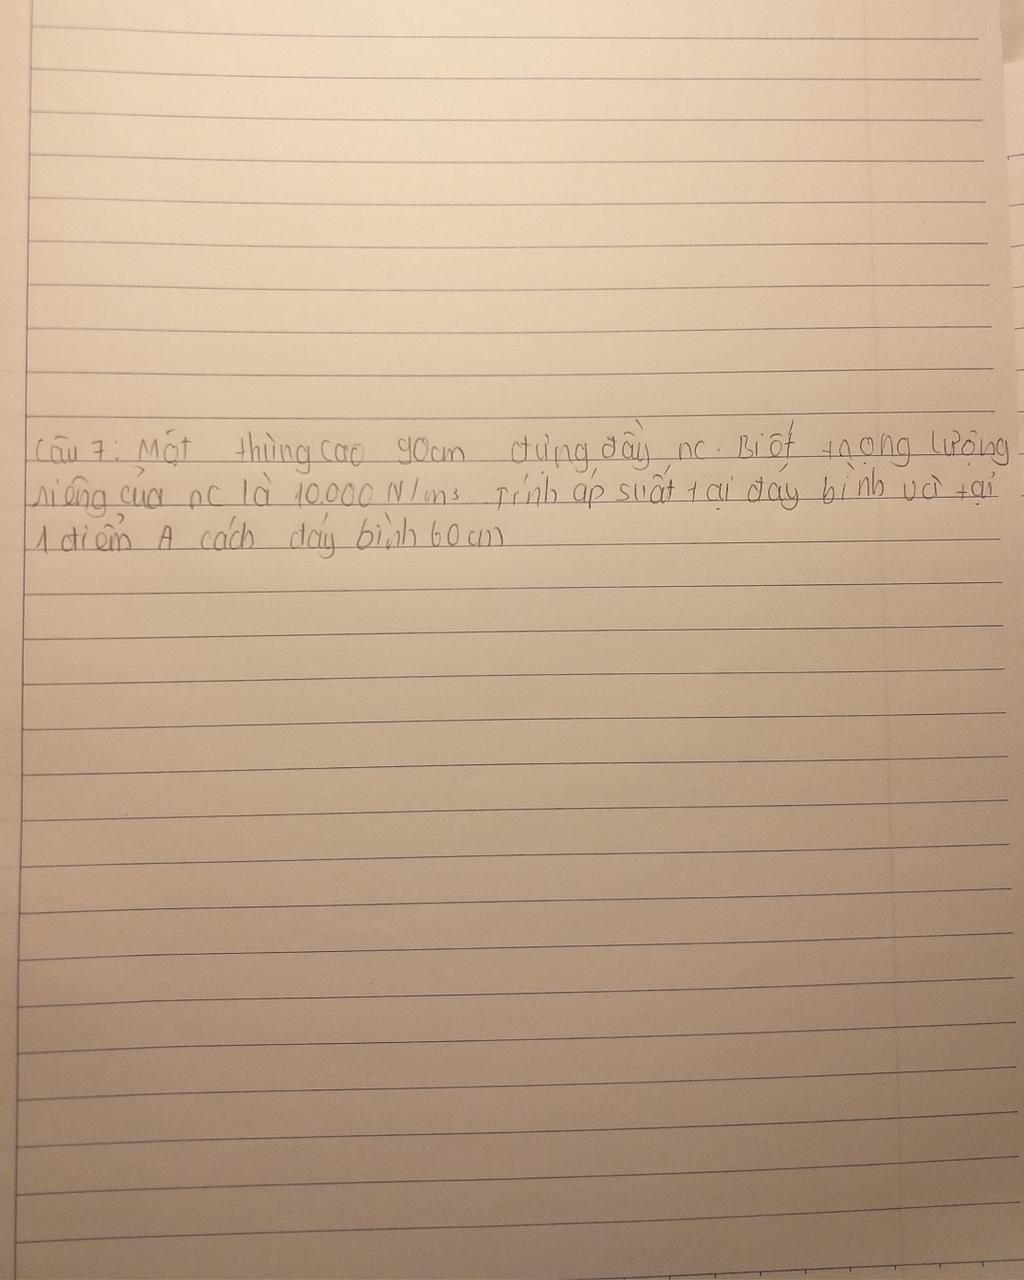 Câu 7: Một thùng cao 90cm đựng đầy nc. Biết trọng lượng
riêng của nc là 10.000 N/m3 Tính áp suất tại đáy bình và tại
1 điểm A cách đáy bình 60cm